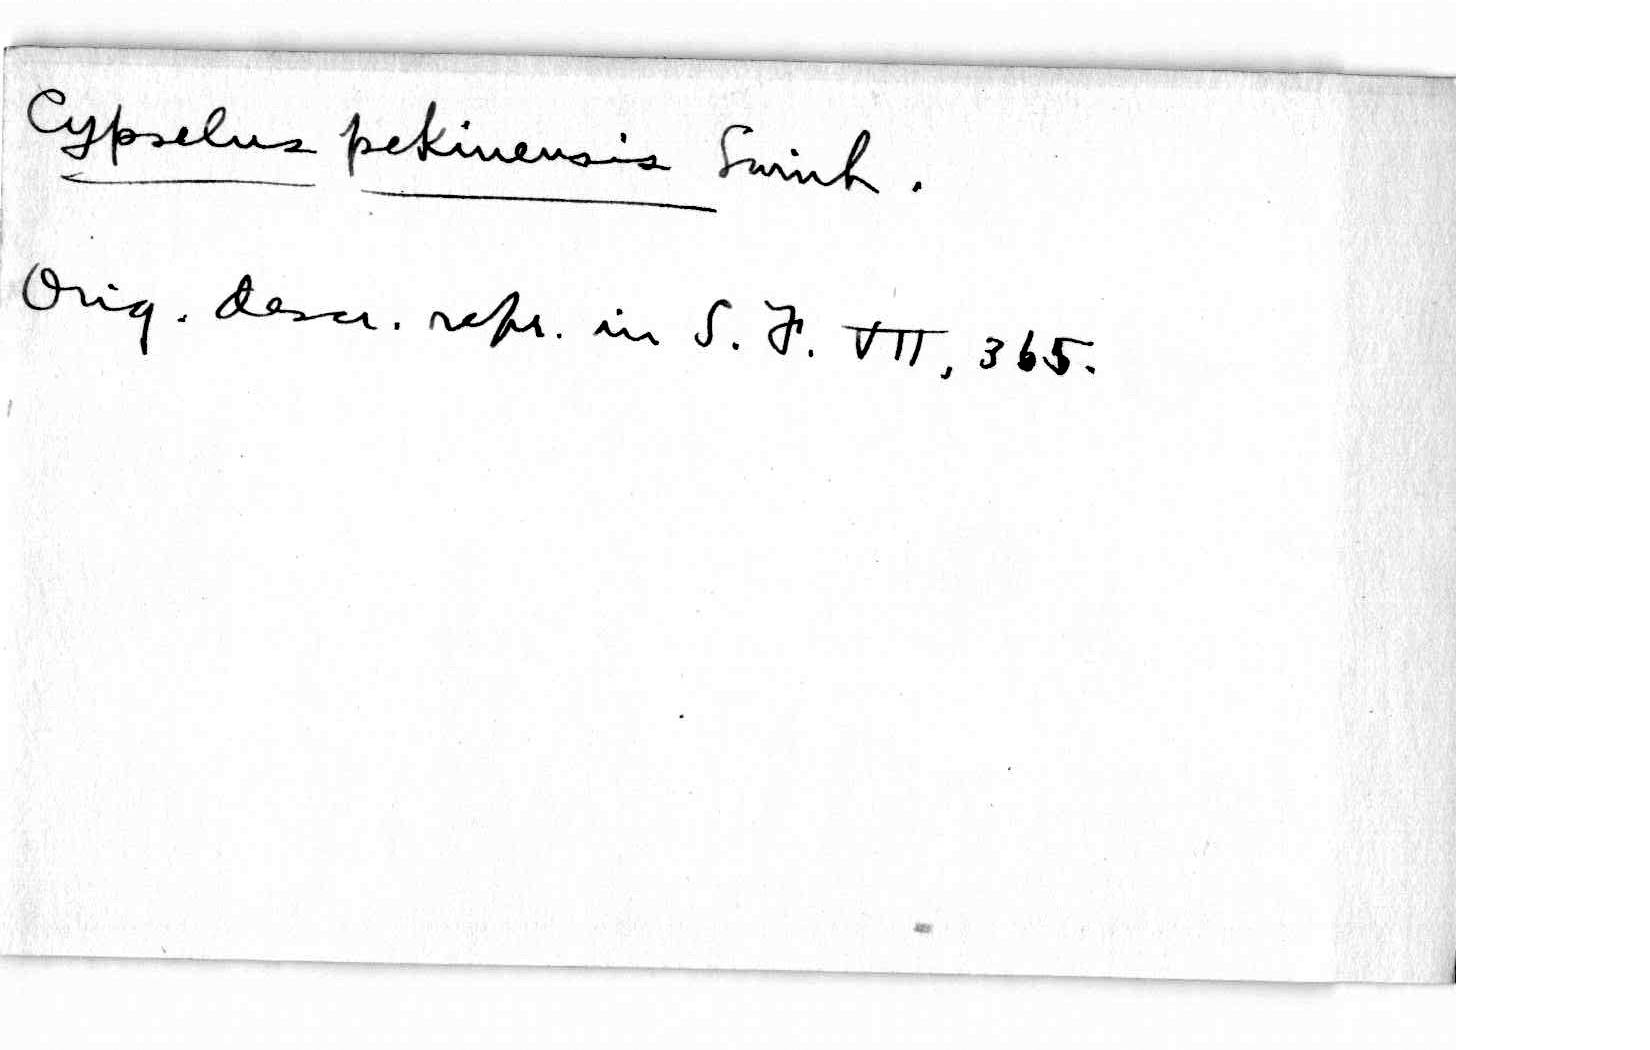 Cypselus pekinensis Swinh.
Orig. descr. repr. in S. F. VII, 365.